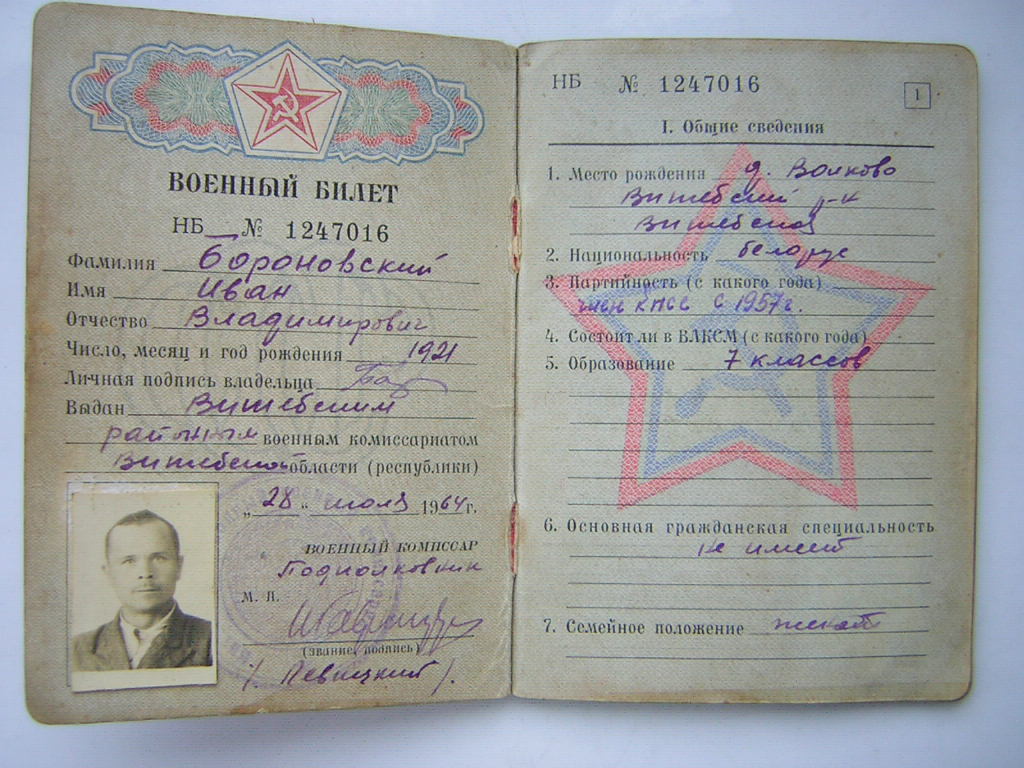 ВОЕННЫЙ БИЛЕТ
НБ № 1247016
Фамилия Бороновский
Имя Иван
Отчество Владимирович
Число, месяц и год рождения 1921
Личная подпись владельца
Выдан Витебским
районным военным комиссариатом
Витебской области (республики)
„ 28 " июля 1964 г.
ВОЕННЫЙ КОМИССАР
Подполковник
М. П.
(звание, подпись)
/ Левицкий /.
НБ № 1247016
1
I. Общие сведения
1. Место рождения д. Волково
Витебский р-н
Витебской
2. Национальность белорус
3. Партийность (с какого года)
член КПСС с 1957 г.
4. Состоит ли в ВЛКСМ (с какого года)
5. Образование 7 классов
6. Основная гражданская специальность
не имеет
7. Семейное положение женат